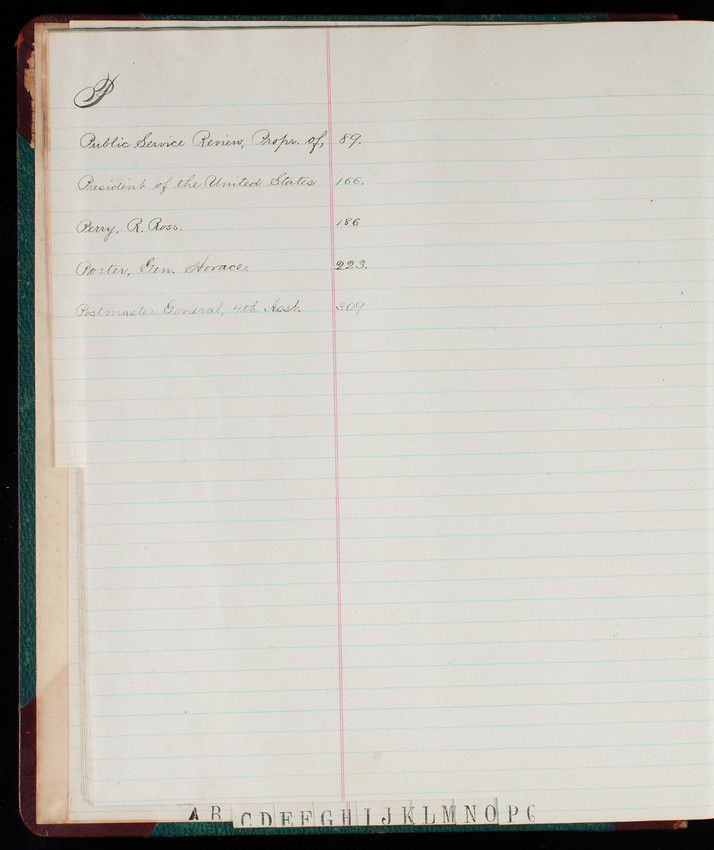 P
Public Service Review, Propr. of, 89.
President of the United States 166.
Perry, R. Ross. 186
Porter, Gen. Horace. 223.
Postmaster General, 4th Asst. 309
A B C D E F G H I J K L M N O P